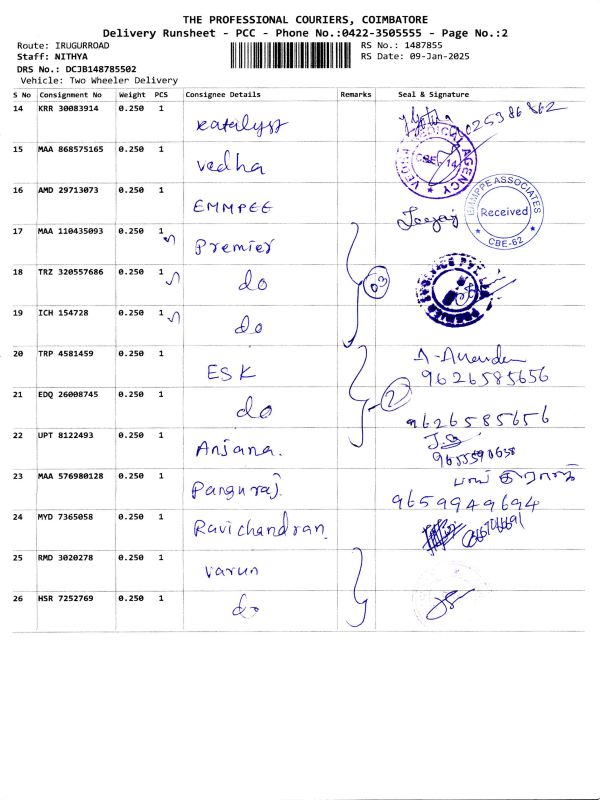 THE PROFESSIONAL COURIERS, COIMBATORE
Delivery Runsheet - PCC - Phone No.:0422-3505555 - Page No.:2
Route: IRUGURROAD RS No.: 1487855
Staff: NITHYA RS Date: 09-Jan-2025
DRS No.: DCJB148785502
Vehicle: Two Wheeler Delivery
S No Consignment No Weight PCS Consignee Details Remarks Seal & Signature
14 KRR 30083914 0.250 1 Katalyst
15 MAA 868575165 0.250 1 Vedha MEDICAL AGENCY CBE-14
16 AMD 29713073 0.250 1 EMMPEE EMMPPE ASSOCIATES Received CBE-62
17 MAA 110435093 0.250 1 Premier
18 TRZ 320557686 0.250 1 do 03
19 ICH 154728 0.250 1 do
20 TRP 4581459 0.250 1 ESK 9626585656
21 EDQ 26008745 0.250 1 do 2 9626585656
22 UPT 8122493 0.250 1 Anjana.
23 MAA 576980128 0.250 1 Panguraj. 9659949694
24 MYD 7365058 0.250 1 Ravichandran
25 RMD 3020278 0.250 1 Varun
26 HSR 7252769 0.250 1 do